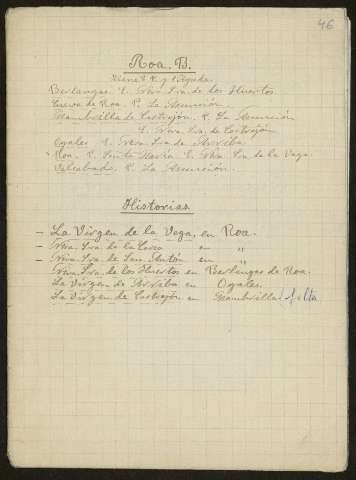 46
Roa. B.
Tiene 8 P. y 1 Ayuda.
Berlangas. E. Ntra Sra. de los Huertos.
Cueva de Roa. P. La Asunción.
Mambrilla de Castrejón. P. La Asunción
E. Ntra. Sra. de Castrejón
Ogales E. Ntra. Sra. de Arriba
Roa. P. Santa María E. Ntra Sra de la Vega.
Valcabado. P. La Asunción.
Historias
- La Virgen de la Vega, en Roa.
- Ntra. Sra. de la Cueva en "
- Ntra. Sra. de San Antón en "
Ntra. Sra. de los Huertos en Berlangas de Roa.
La Virgen de Arriba en Ogales.
La Virgen de Castrejón en Mambrilla. falta